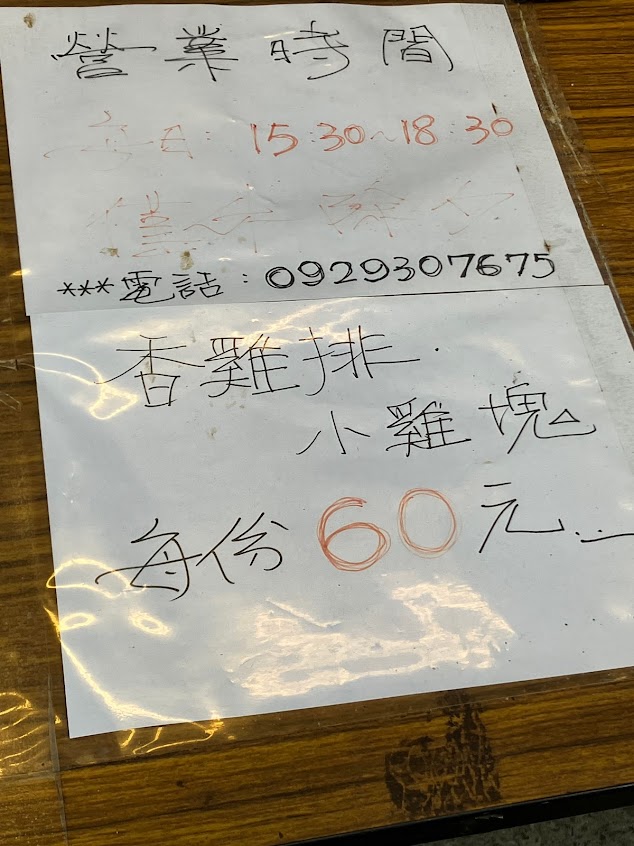 營業時間
每日：15:30~18:30
僅年除夕
***電話：0929307675
香雞排．
小雞塊
每份60元